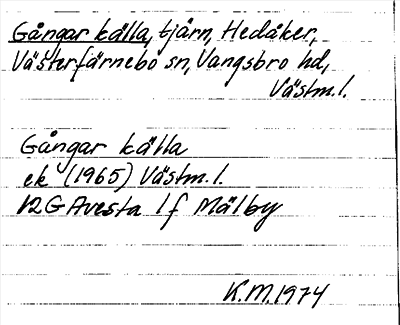 Gångar källa, tjärn, Hedåker,
Västerfärnebo sn, Vangsbro hd,
Västm. l.
Gångar källa
ek (1965) Västm. l.
12G Avesta 1 f Mälby
K.M. 1974